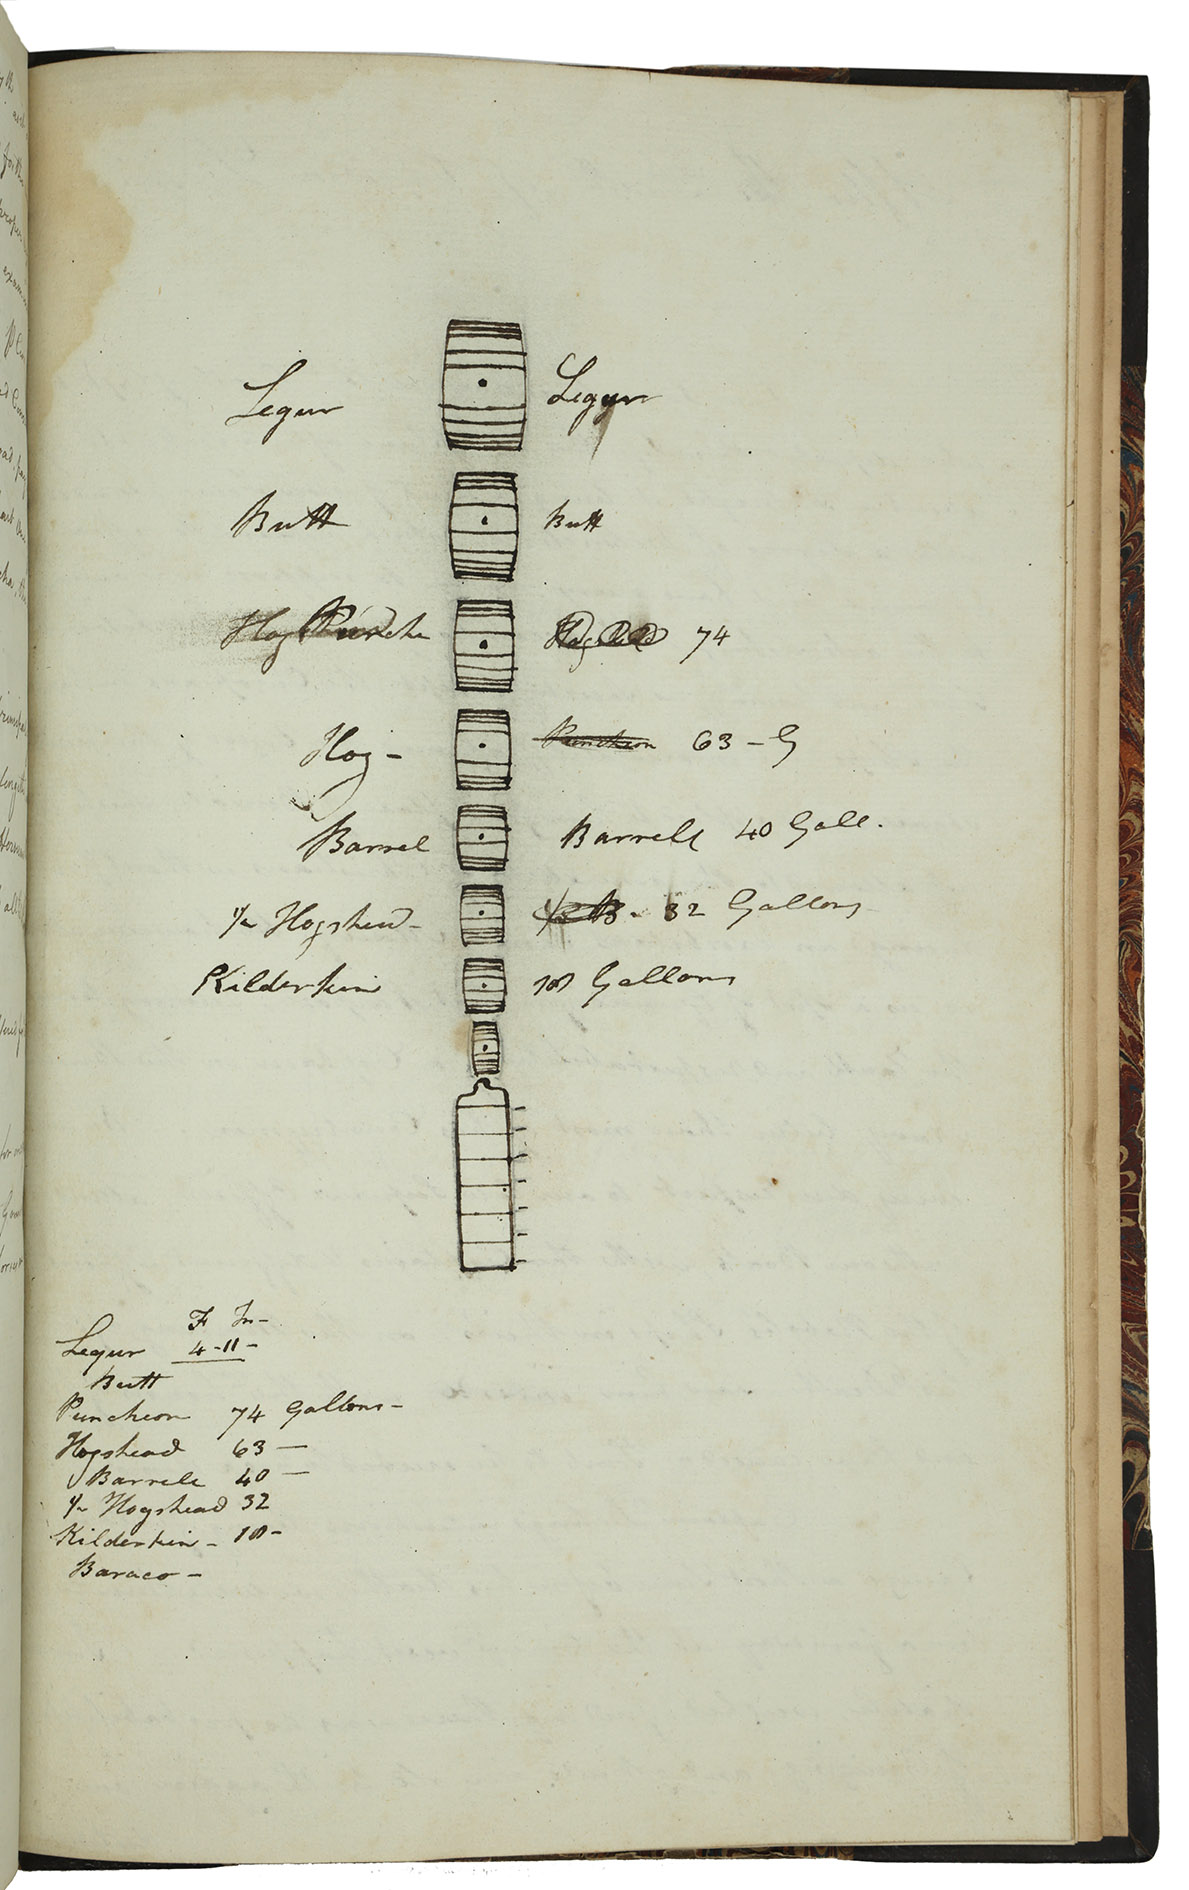 Legur Legur
Butt Butt
Hogs Punche Hogshead 74
Hog - Puncheon 63 - G
Barrel Barrell 40 Gall.
1/2 Hogshead - 1/2 B. 32 Gallons
Kilderkin 18 Gallons
Ft In -
Legur 4 - 11 -
Butt
Puncheon 74 Gallons -
Hogshead 63 —
Barrell 40 —
1/2 Hogshead 32
Kilderkin - 18 -
Baraco -